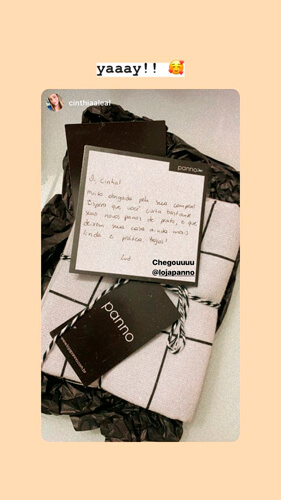 yaaay!! 🥰
cinthiaaleal
panno
Oi, Cintia!
Muito obrigada pela sua compra!
Espero que você curta bastante
seus novos panos de prato, e que
deixem sua casa ainda mais
linda e prática. Beijos!
Lud
Chegouuuu
@lojapanno
panno